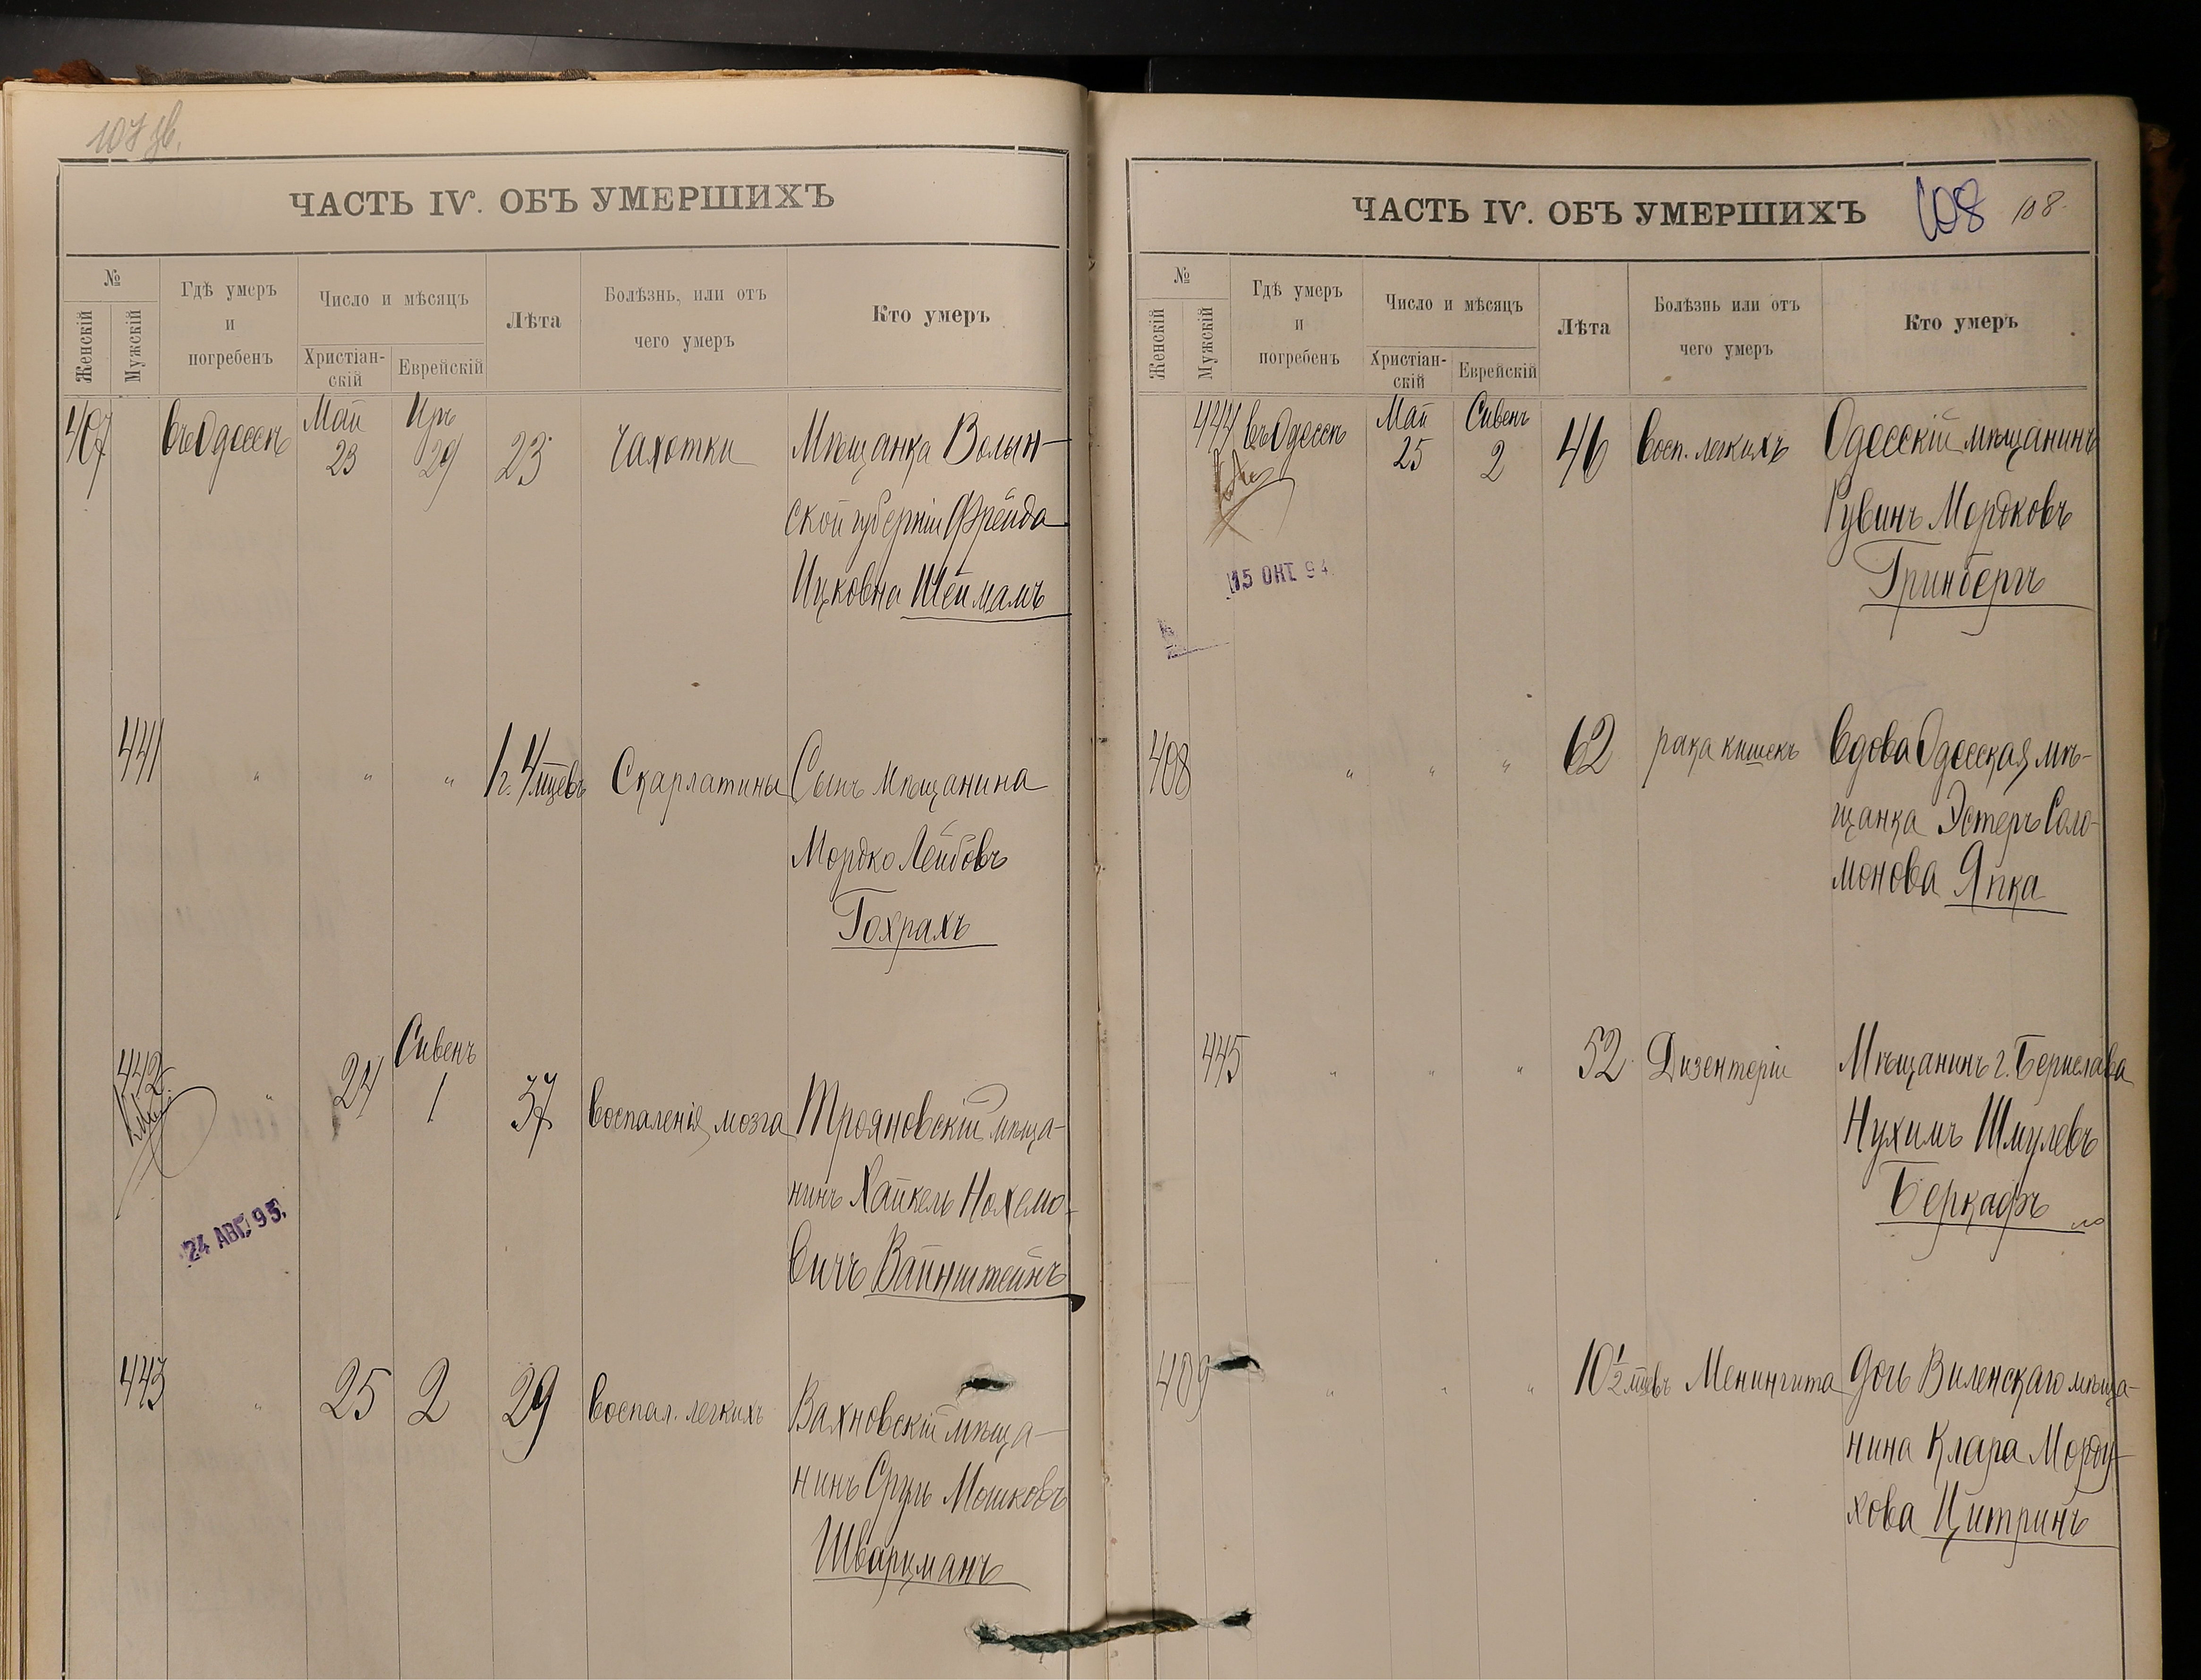 107 об.
ЧАСТЬ IV. ОБЪ УМЕРШИХЪ
№
Женскій
Мужскій
Гдѣ умеръ
и
погребенъ
Число и мѣсяцъ
Христіан-
скій
Еврейскій
Лѣта
Болѣзнь, или отъ
чего умеръ
Кто умеръ
407 въ Одессѣ Май 23 Иръ 29 23 Чахотки Мѣщанка Волын-
ской губерніи Фрейда
Ицковна Шейманъ
441 " " " 1 г. 4 мцевъ Скарлатины Сынъ мѣщанина
Мордко Лейбовъ
Гохрахъ
442 " 24 Сивенъ 1 37 Воспаленія мозга Трояновскій мѣща-
нинъ Хайкель Нохемо-
вичъ Вайнштейнъ
24 АВГ. 95.
443 " 25 2 29 Воспал. легкихъ Вахновскій мѣща-
нинъ Сруль Мошковъ
Шварцманъ
ЧАСТЬ IV. ОБЪ УМЕРШИХЪ
108 108.
№
Женскій
Мужскій
Гдѣ умеръ
и
погребенъ
Число и мѣсяцъ
Христіан-
скій
Еврейскій
Лѣта
Болѣзнь или отъ
чего умеръ
Кто умеръ
444 въ Одессѣ Май 25 Сивенъ 2 46 Восп. легкихъ Одесскій мѣщанинъ
Рувинъ Мордковъ
Гринбергъ
15 ОКТ. 94
408 " " " 62 рака кишекъ Вдова Одесская мѣ-
щанка Эстеръ Соло-
монова Япка
445 " " " 52 Дизентеріи Мѣщанинъ г. Берислава
Нухимъ Шмулевъ
Беркафъ
409 " " " 10 1/2 мцевъ Менингита Дочь Виленскаго мѣща-
нина Клара Морду-
хова Цитринъ